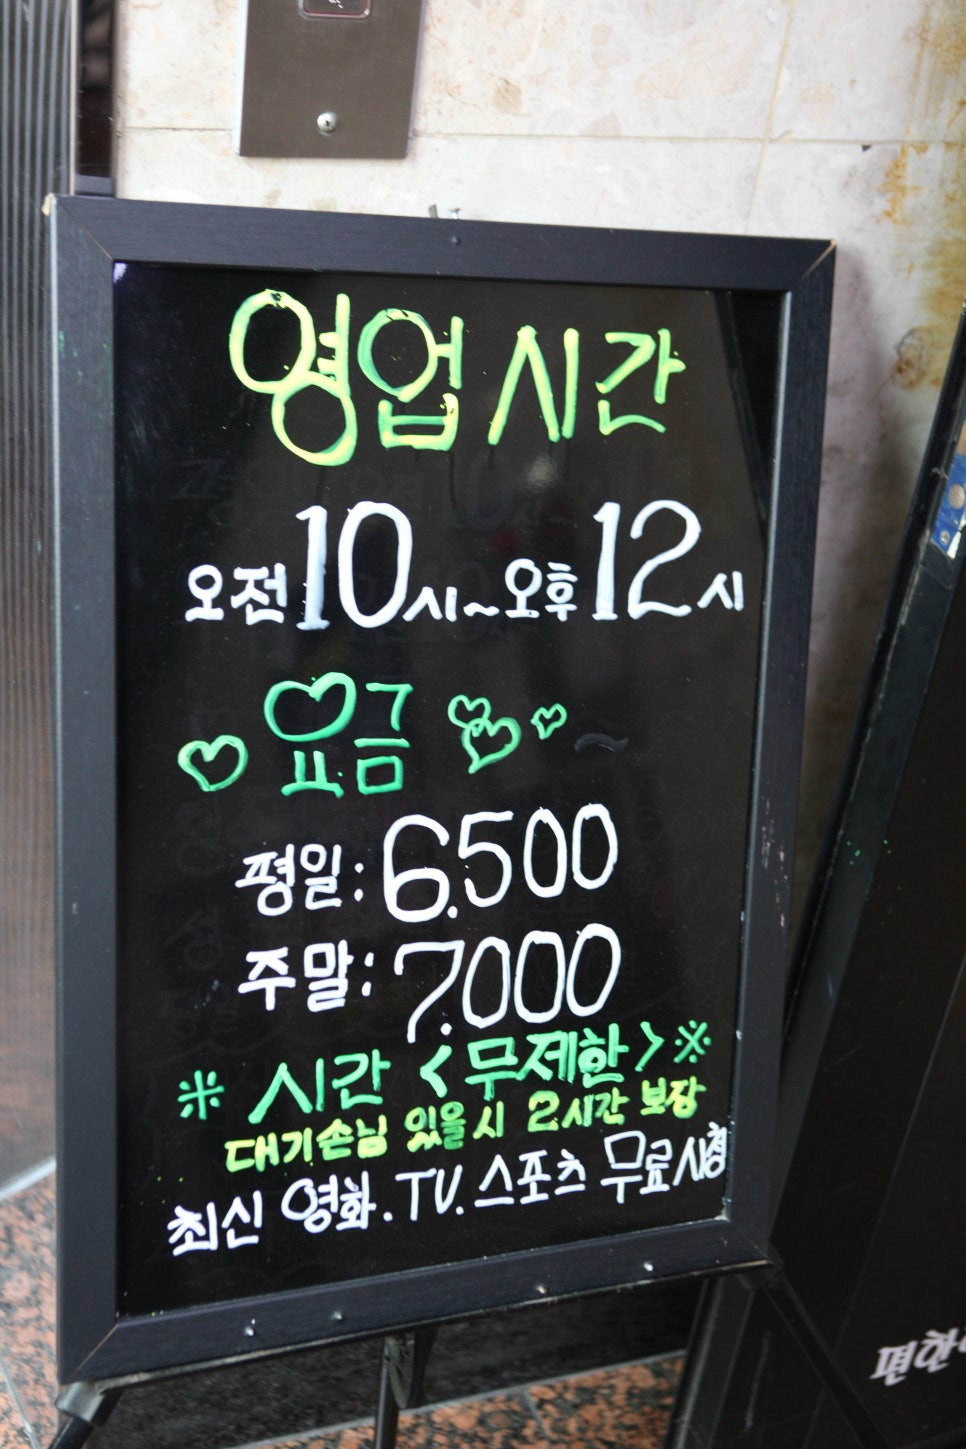 영업시간
오전10시~오후12시
요금
평일: 6,500
주말: 7,000
※ 시간 <무제한> ※
대기손님 있을시 2시간 보장
최신 영화. TV. 스포츠 무료시청
편한